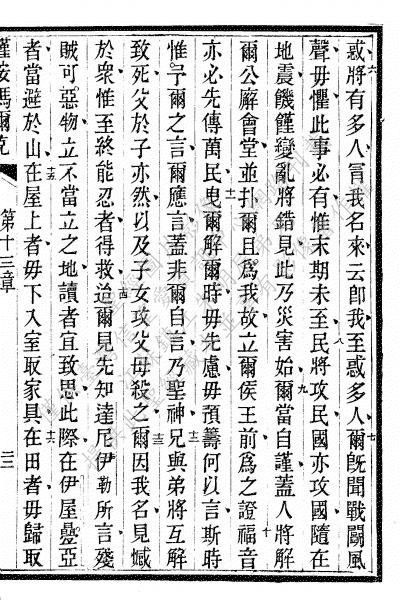 惑將有多人冐我名來云卽我至惑多人爾旣聞戰鬭風
聲毋懼此事必有惟末期未至民將攻民國亦攻國隨在
地震饑饉變亂將錯見此乃災害始爾當自謹蓋人將解
爾公廨會堂並扑爾且爲我故立爾侯王前爲之證福音
亦必先傳萬民曳爾解爾時毋先慮毋預籌何以言斯時
惟予爾之言爾應言蓋非爾自言乃聖神兄與弟將互解
致死父於子亦然以及子女攻父母殺之爾因我名見憾
於衆惟至終能忍者得救迨爾見先知達尼伊勒所言殘
賊可惡物立不當立之地讀者宜致思此際在伊屋疊亞
者當避於山在屋上者毋下入室取家具在田者毋歸取
謹按瑪爾克
第十三章
三